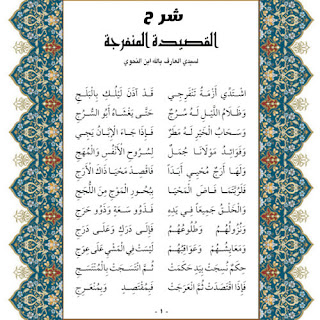 شرح
القصيدة المنفرجة
لسيدي العارف بالله ابن النحوي
اشْتَدِّي أَزْمَةُ تَنْفَرِجِي قَدْ آذَنَ لَيْلُكِ بِالْبَلَجِ
وَظَلَامُ اللَّيْلِ لَهُ سُرُجٌ حَتَّى يَغْشَاهُ أَبُو السُّرُجِ
وَسَحَابُ الْخَيْرِ لَهُ مَطَرٌ فَإِذَا جَاءَ الْإِبَّانُ يَجِي
وَفَوَائِدُ مَوْلَانَا جُمَلٌ لِسُرُوحِ الْأَنْفُسِ وَالْمُهَجِ
وَلَهَا أَرَجٌ مُحْيِي أَبَدًا فَاقْصِدْ مَحْيَا ذَاكَ الْأَرَجِ
فَلَرُبَّتَمَا فَاضَ الْمَحْيَا بِبُحُورِ الْمَوْجِ مِنَ اللُّجَجِ
وَالْخَلْقُ جَمِيعًا فِي يَدِهِ فَذَوُو سَعَةٍ وَذَوُو حَرَجِ
وَنُزُولُهُمُ وَطُلُوعُهُمُ فَإِلَى دَرَكٍ وَعَلَى دَرَجِ
وَمَعَايِشُهُمْ وَعَوَاقِبُهُمْ لَيْسَتْ فِي الْمَشْيِ عَلَى عِوَجِ
حِكَمٌ نُسِجَتْ بِيَدٍ حَكَمَتْ ثُمَّ انْتَسَجَتْ بِالْمُنْتَسِجِ
فَإِذَا اقْتَصَدَتْ ثُمَّ انْعَرَجَتْ فَبِمُقْتَصِدٍ وَبِمُنْعَرِجِ
- ١ -